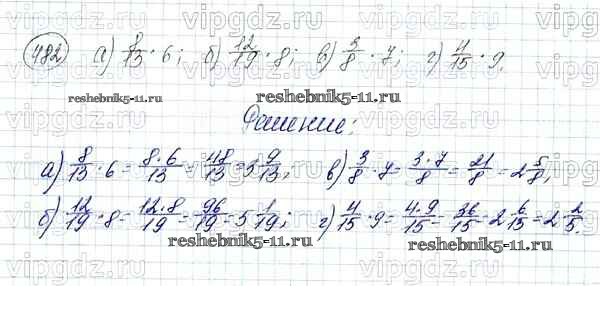 vipgdz.ru vipgdz.ru vipgdz.ru
482) а) 8/13 · 6; б) 12/19 · 8; в) 3/8 · 7; г) 4/15 · 9.
reshebnik5-11.ru reshebnik5-11.ru
Решение:
а) 8/13 · 6 = 8·6/13 = 48/13 = 3 9/13; в) 3/8 · 7 = 3·7/8 = 21/8 = 2 5/8;
б) 12/19 · 8 = 12·8/19 = 96/19 = 5 1/19; г) 4/15 · 9 = 4·9/15 = 36/15 = 2 6/15 = 2 2/5.
reshebnik5-11.ru reshebnik5-11.ru
vipgdz.ru vipgdz.ru vipgdz.ru